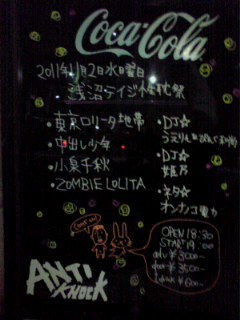 Coca-Cola
2011年11月2日水曜日
浅沼テイジ性忱祭
・東京ロリータ地帯
・中出し少年
・小泉千秋
・ZOMBIE LOLITA
・DJ☆
・DJ☆
姫乃
・ネタ☆
オンナノコ電力
OPEN 18:30
START 19:00
adv ¥3000-
door ¥3500-
ANTI
KNOCK